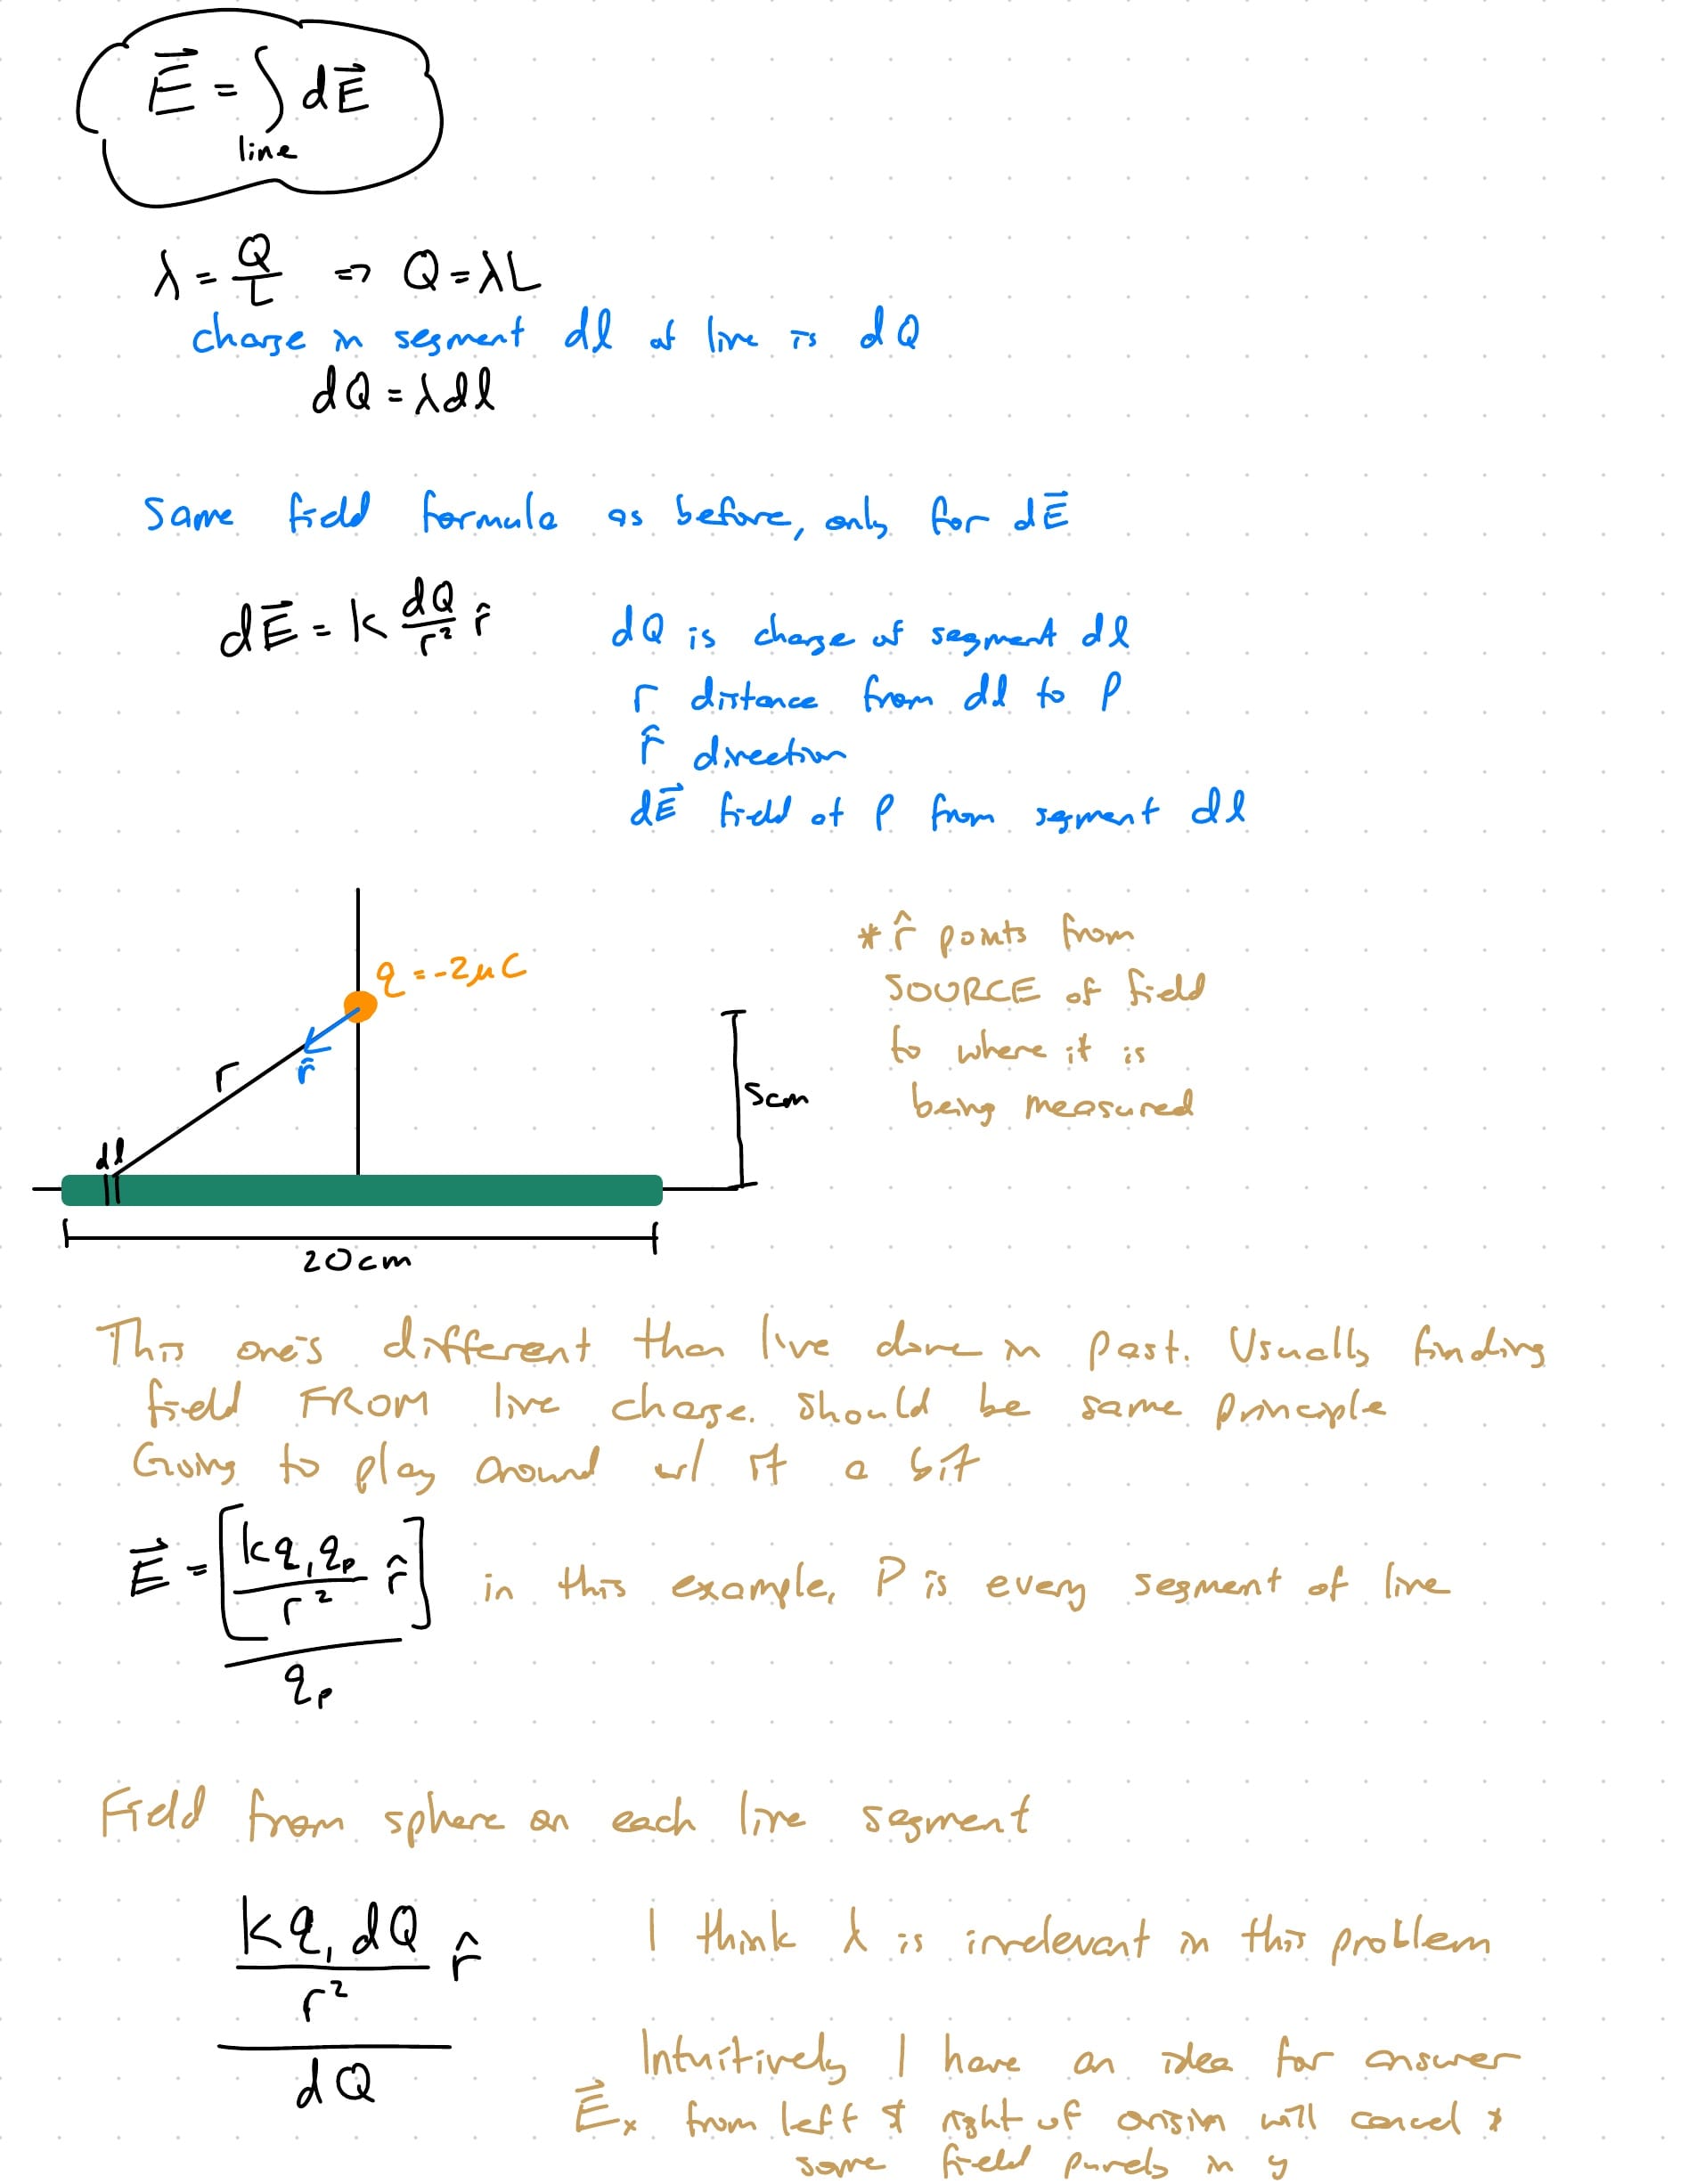 E⃗ = ∫ dE⃗
line
λ = Q/L ⇒ Q = λL
charge in segment dl of line is dQ
dQ = λdl
Same field formula as before, only for dE⃗
dE⃗ = k dQ/r² r̂
dQ is charge of segment dl
r distance from dl to P
r̂ direction
dE⃗ field at P from segment dl
q = -2μC
* r̂ points from
SOURCE of field
to where it is
being measured
r
r̂
5cm
dl
20cm
This one's different than I've done in past. Usually finding
field FROM line charge. Should be same principle
Going to play around w/ it a bit
E⃗ = [kq₁qₚ/r² r̂]/qₚ in this example, P is every segment of line
Field from sphere on each line segment
(kq₁dQ/r² r̂)/dQ
I think λ is irrelevant in this problem
Intuitively I have an idea for answer
E⃗ₓ from left & right of origin will cancel &
some field purely in y